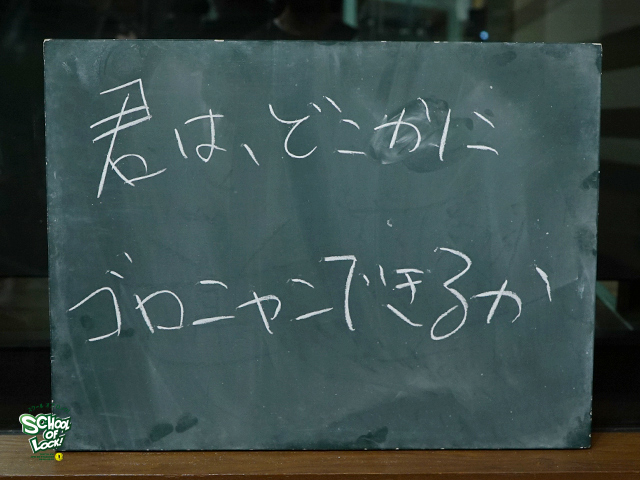 君は、どこかに
ゴロニャンできるか
SCHOOL
OF
LOCK!